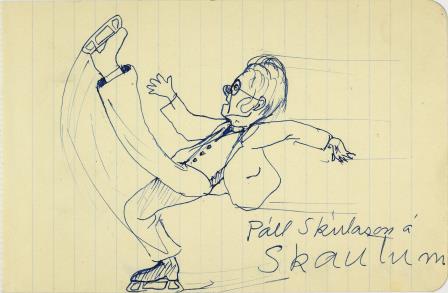 Páll Skúlason á
Skautum